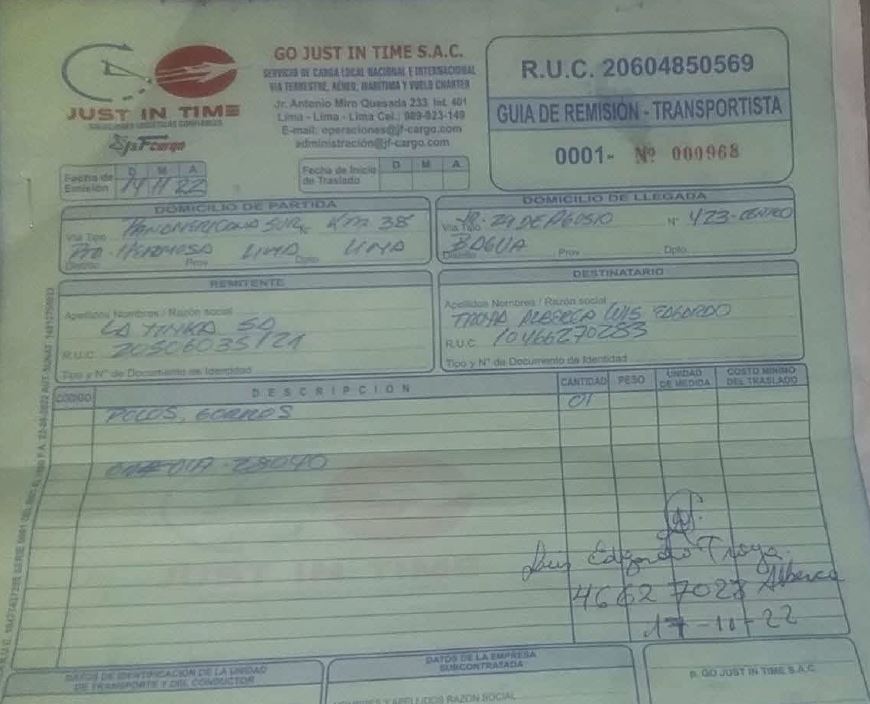 JUST IN TIME
SOLUCIONES LOGÍSTICAS CONFIABLES
J&F cargo
GO JUST IN TIME S.A.C.
SERVICIO DE CARGA LOCAL NACIONAL E INTERNACIONAL
VIA TERRESTRE, AÉREO, MARITIMA Y VUELO CHARTER
Jr. Antonio Miro Quesada 233 Int. 401
Lima - Lima - Lima Cel.: 989-823-149
E-mail: operaciones@jf-cargo.com
administración@jf-cargo.com
R.U.C. 20604850569
GUIA DE REMISIÓN - TRANSPORTISTA
0001- Nº 000968
Fecha de Emisión D M A
14 11 22
Fecha de Inicio de Traslado D M A
DOMICILIO DE PARTIDA
Via Tipo PANAMERICANA SUR Km 38
Distrito Pta. HERMOSA Prov. LIMA Dpto. LIMA
DOMICILIO DE LLEGADA
Via Tipo JR. 29 DE AGOSTO Nº 423-CENTRO
Distrito BAGUA Prov. Dpto.
REMITENTE
Apellidos Nombres / Razón social
LA TINKA SA
R.U.C. 20506035121
Tipo y N° de Documento de Identidad
DESTINATARIO
Apellidos Nombres / Razón social
TROYA ALBERCA LUIS EDGARDO
R.U.C. 10466270283
Tipo y N° de Documento de Identidad
CODIGO DESCRIPCION CANTIDAD PESO UNIDAD DE MEDIDA COSTO MINIMO DEL TRASLADO
POLOS, GORROS 01
28040
JUST IN TIME
Luis Edgardo Troya
Alberca
46627028
17-11-22
DATOS DE IDENTIFICACIÓN DE LA UNIDAD
DE TRANSPORTE Y DEL CONDUCTOR
DATOS DE LA EMPRESA
SUBCONTRASADA
NOMBRES Y APELLIDOS RAZÓN SOCIAL
p. GO JUST IN TIME S.A.C.